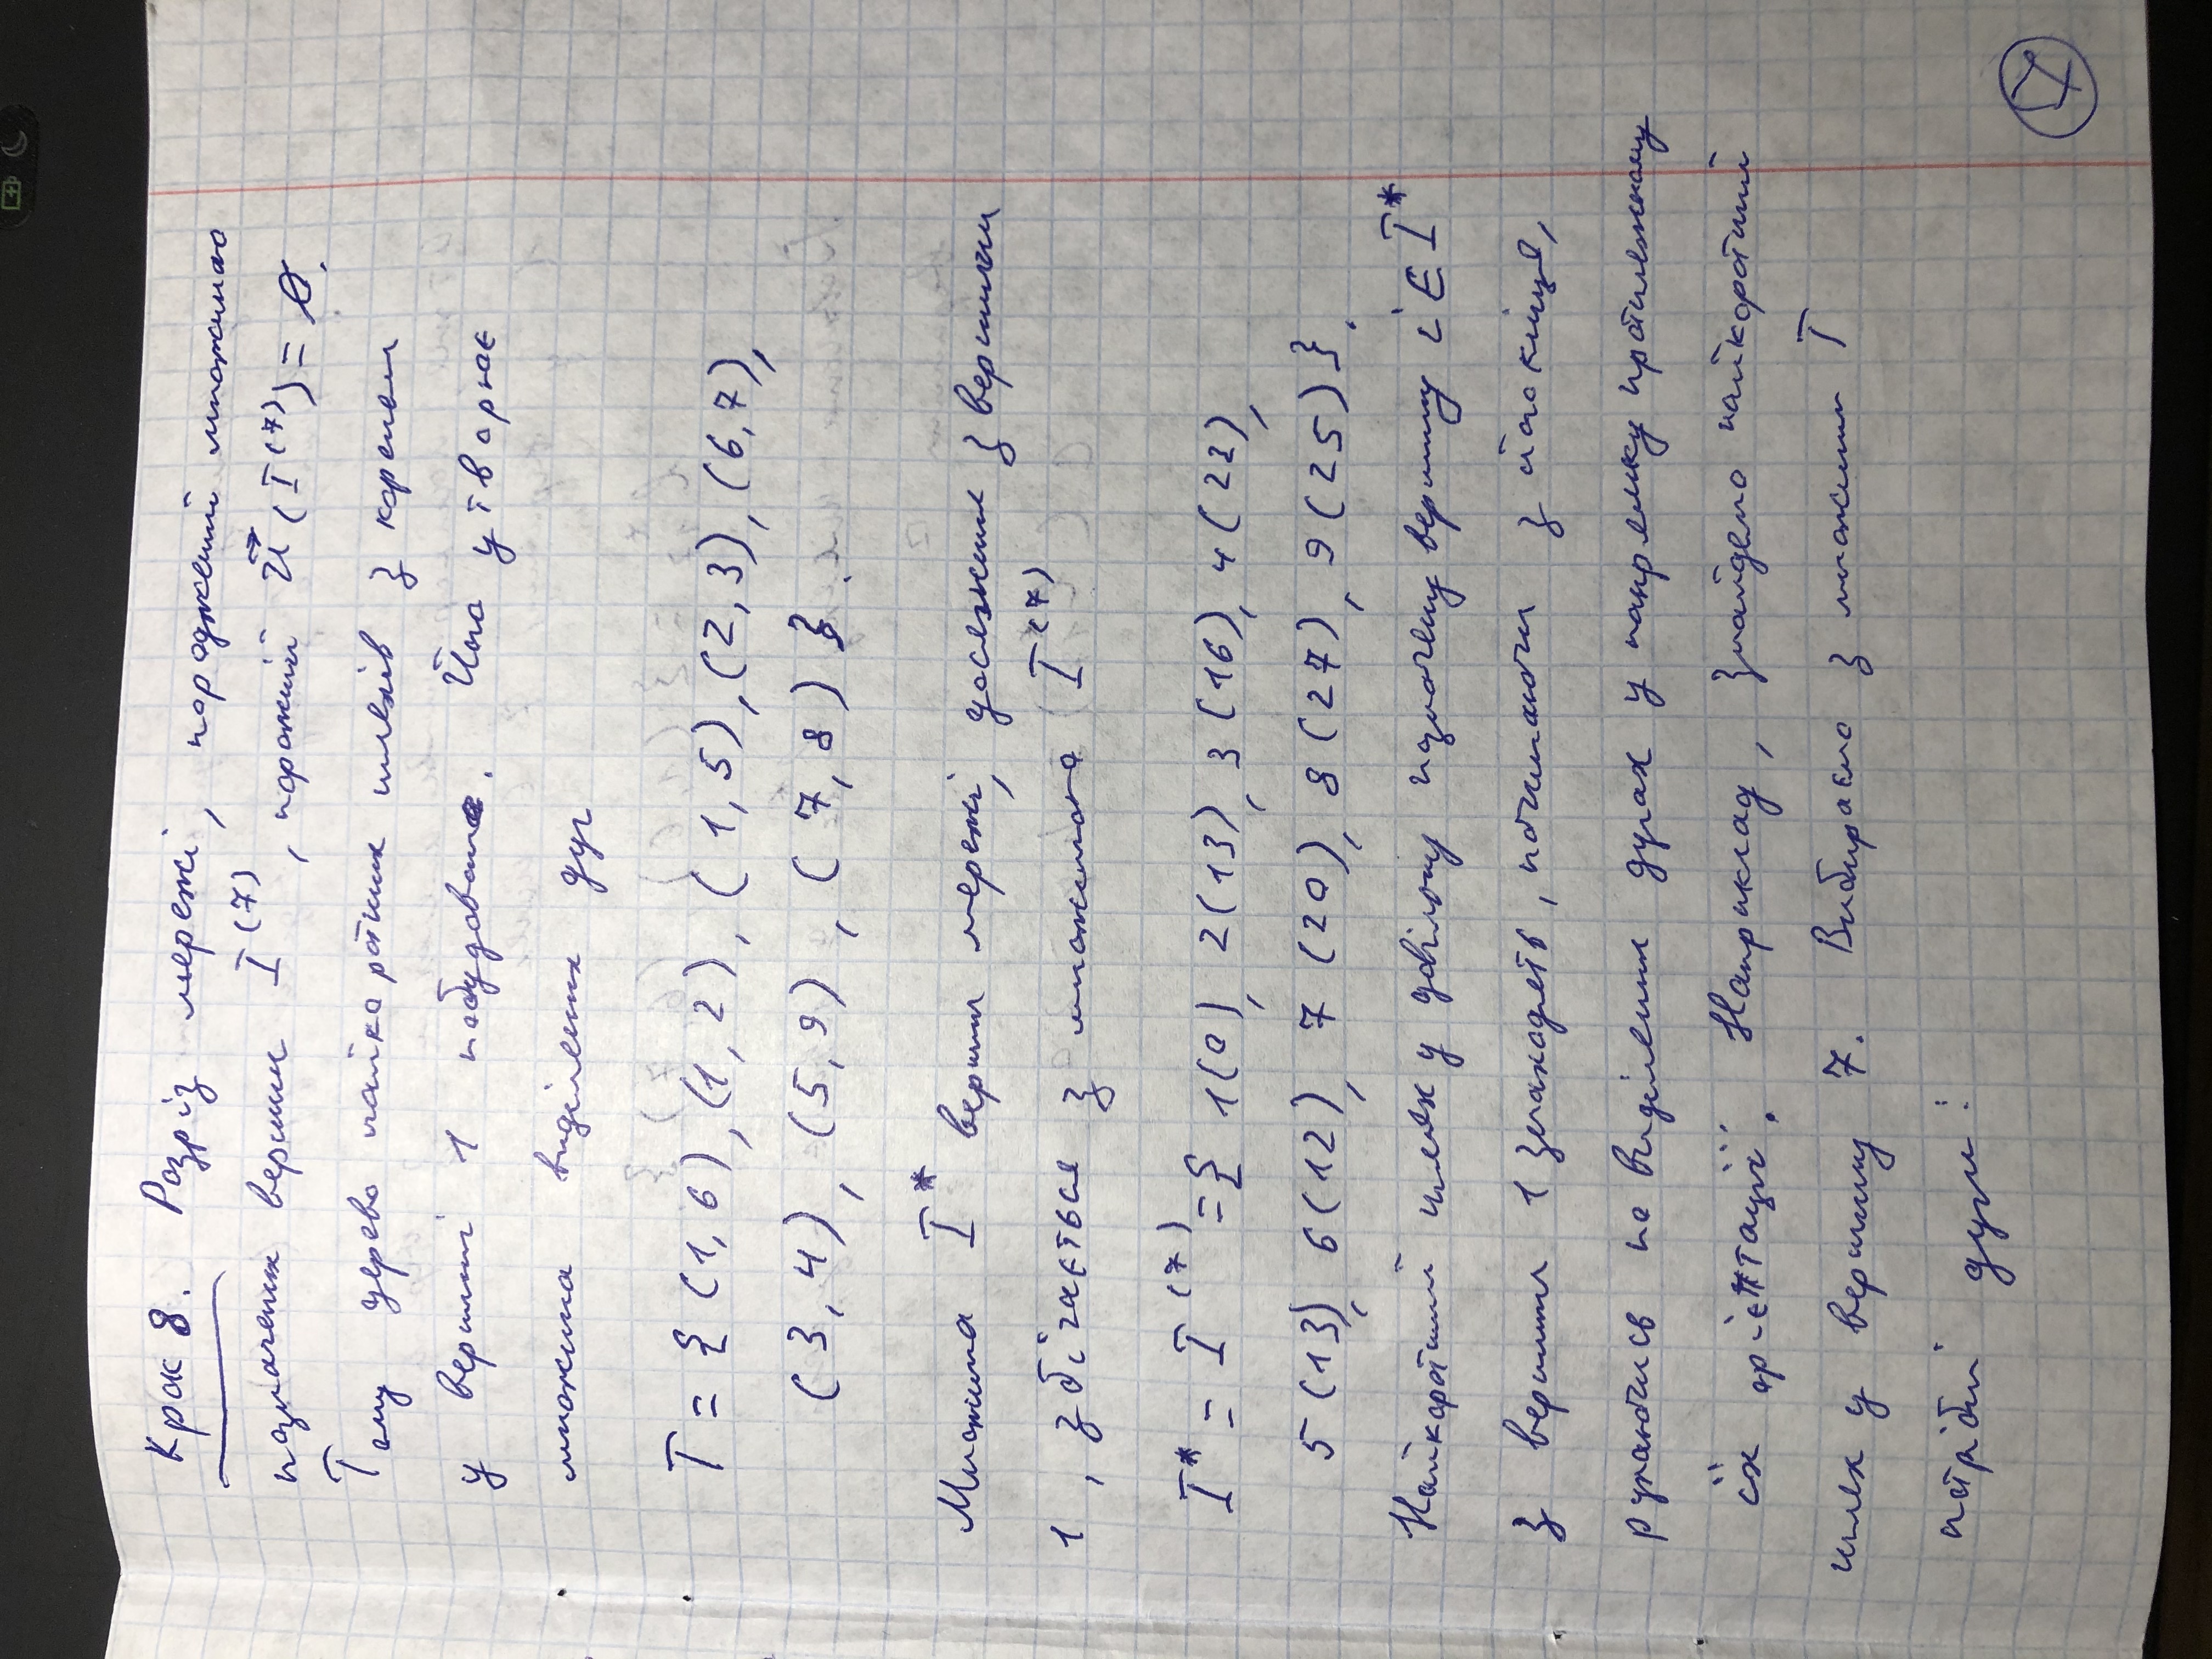 Крок 8. Розріз мережі, породжений множиною
позначених вершин I^(7), порожній U⃗(I^(7)) = ∅.
Тому дерево найкоротших шляхів з коренем
у вершині 1 побудоване. Його утворює
множина виділених дуг
T = { (1, 6), (1, 2), (1, 5), (2, 3), (6, 7),
(3, 4), (5, 9), (7, 8) }.
Множина I* вершин мережі, досяжних з вершини
1, збігається з множиною I^(7)
I* = I^(7) = { 1(0), 2(13), 3(16), 4(22),
5(13), 6(12), 7(20), 8(27), 9(25) }.
Найкоротший шлях у довільну позначену вершину i ∈ I*
з вершини 1 знаходять, починаючи з його кінця,
рухаючись по виділених дугах у напрямку протилежному
їх орієнтації. Наприклад, знайдемо найкоротший
шлях у вершину 7. Вибираємо з множини T
потрібні дуги:
7